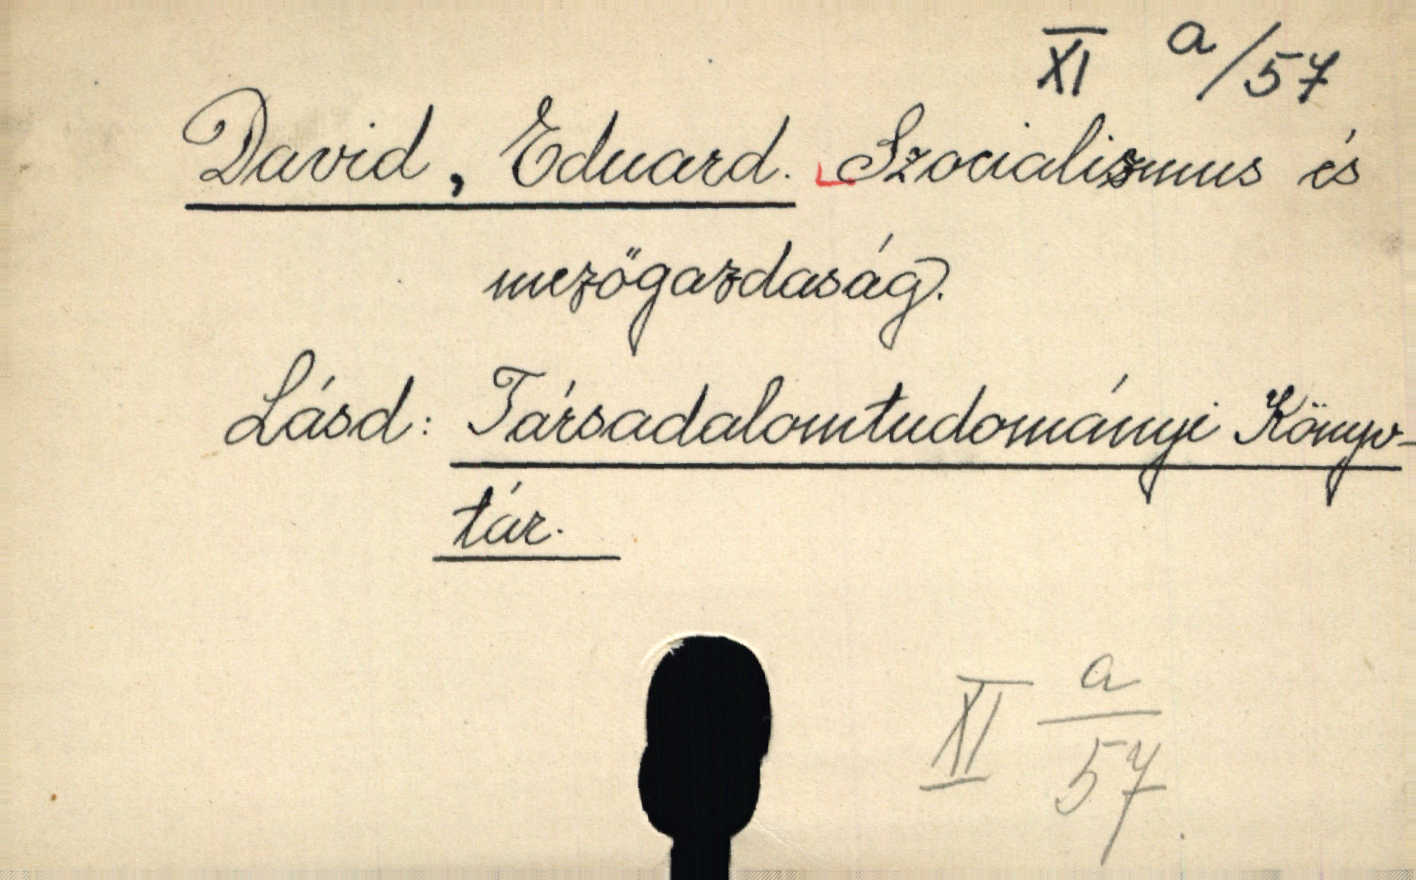 XI a/57
David, Eduard. Szocializmus és
mezőgazdaság.
Lásd: Társadalomtudományi Könyv-
tár.
XI a/57